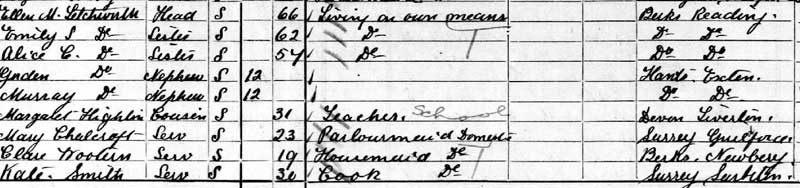 Ellen M. Letchworth Head S 66 Living on own means Berks Reading.
Emily S Do Sister S 62 Do Do Do
Alice C. Do Sister S 54 Do Do Do
Do Nephew S 12 Hants.
Murray Do Nephew S 12 Do Do
Margaret Cousin S 31 Teacher. School Devon Tiverton.
Mary Chalcroft Serv S 23 Parlourmaid Domestic Surrey Guildford.
Clare Serv S 19 Housemaid Do Berks. Newbery
Kate. Smith Serv S 30 Cook Do Surrey Surbiton.